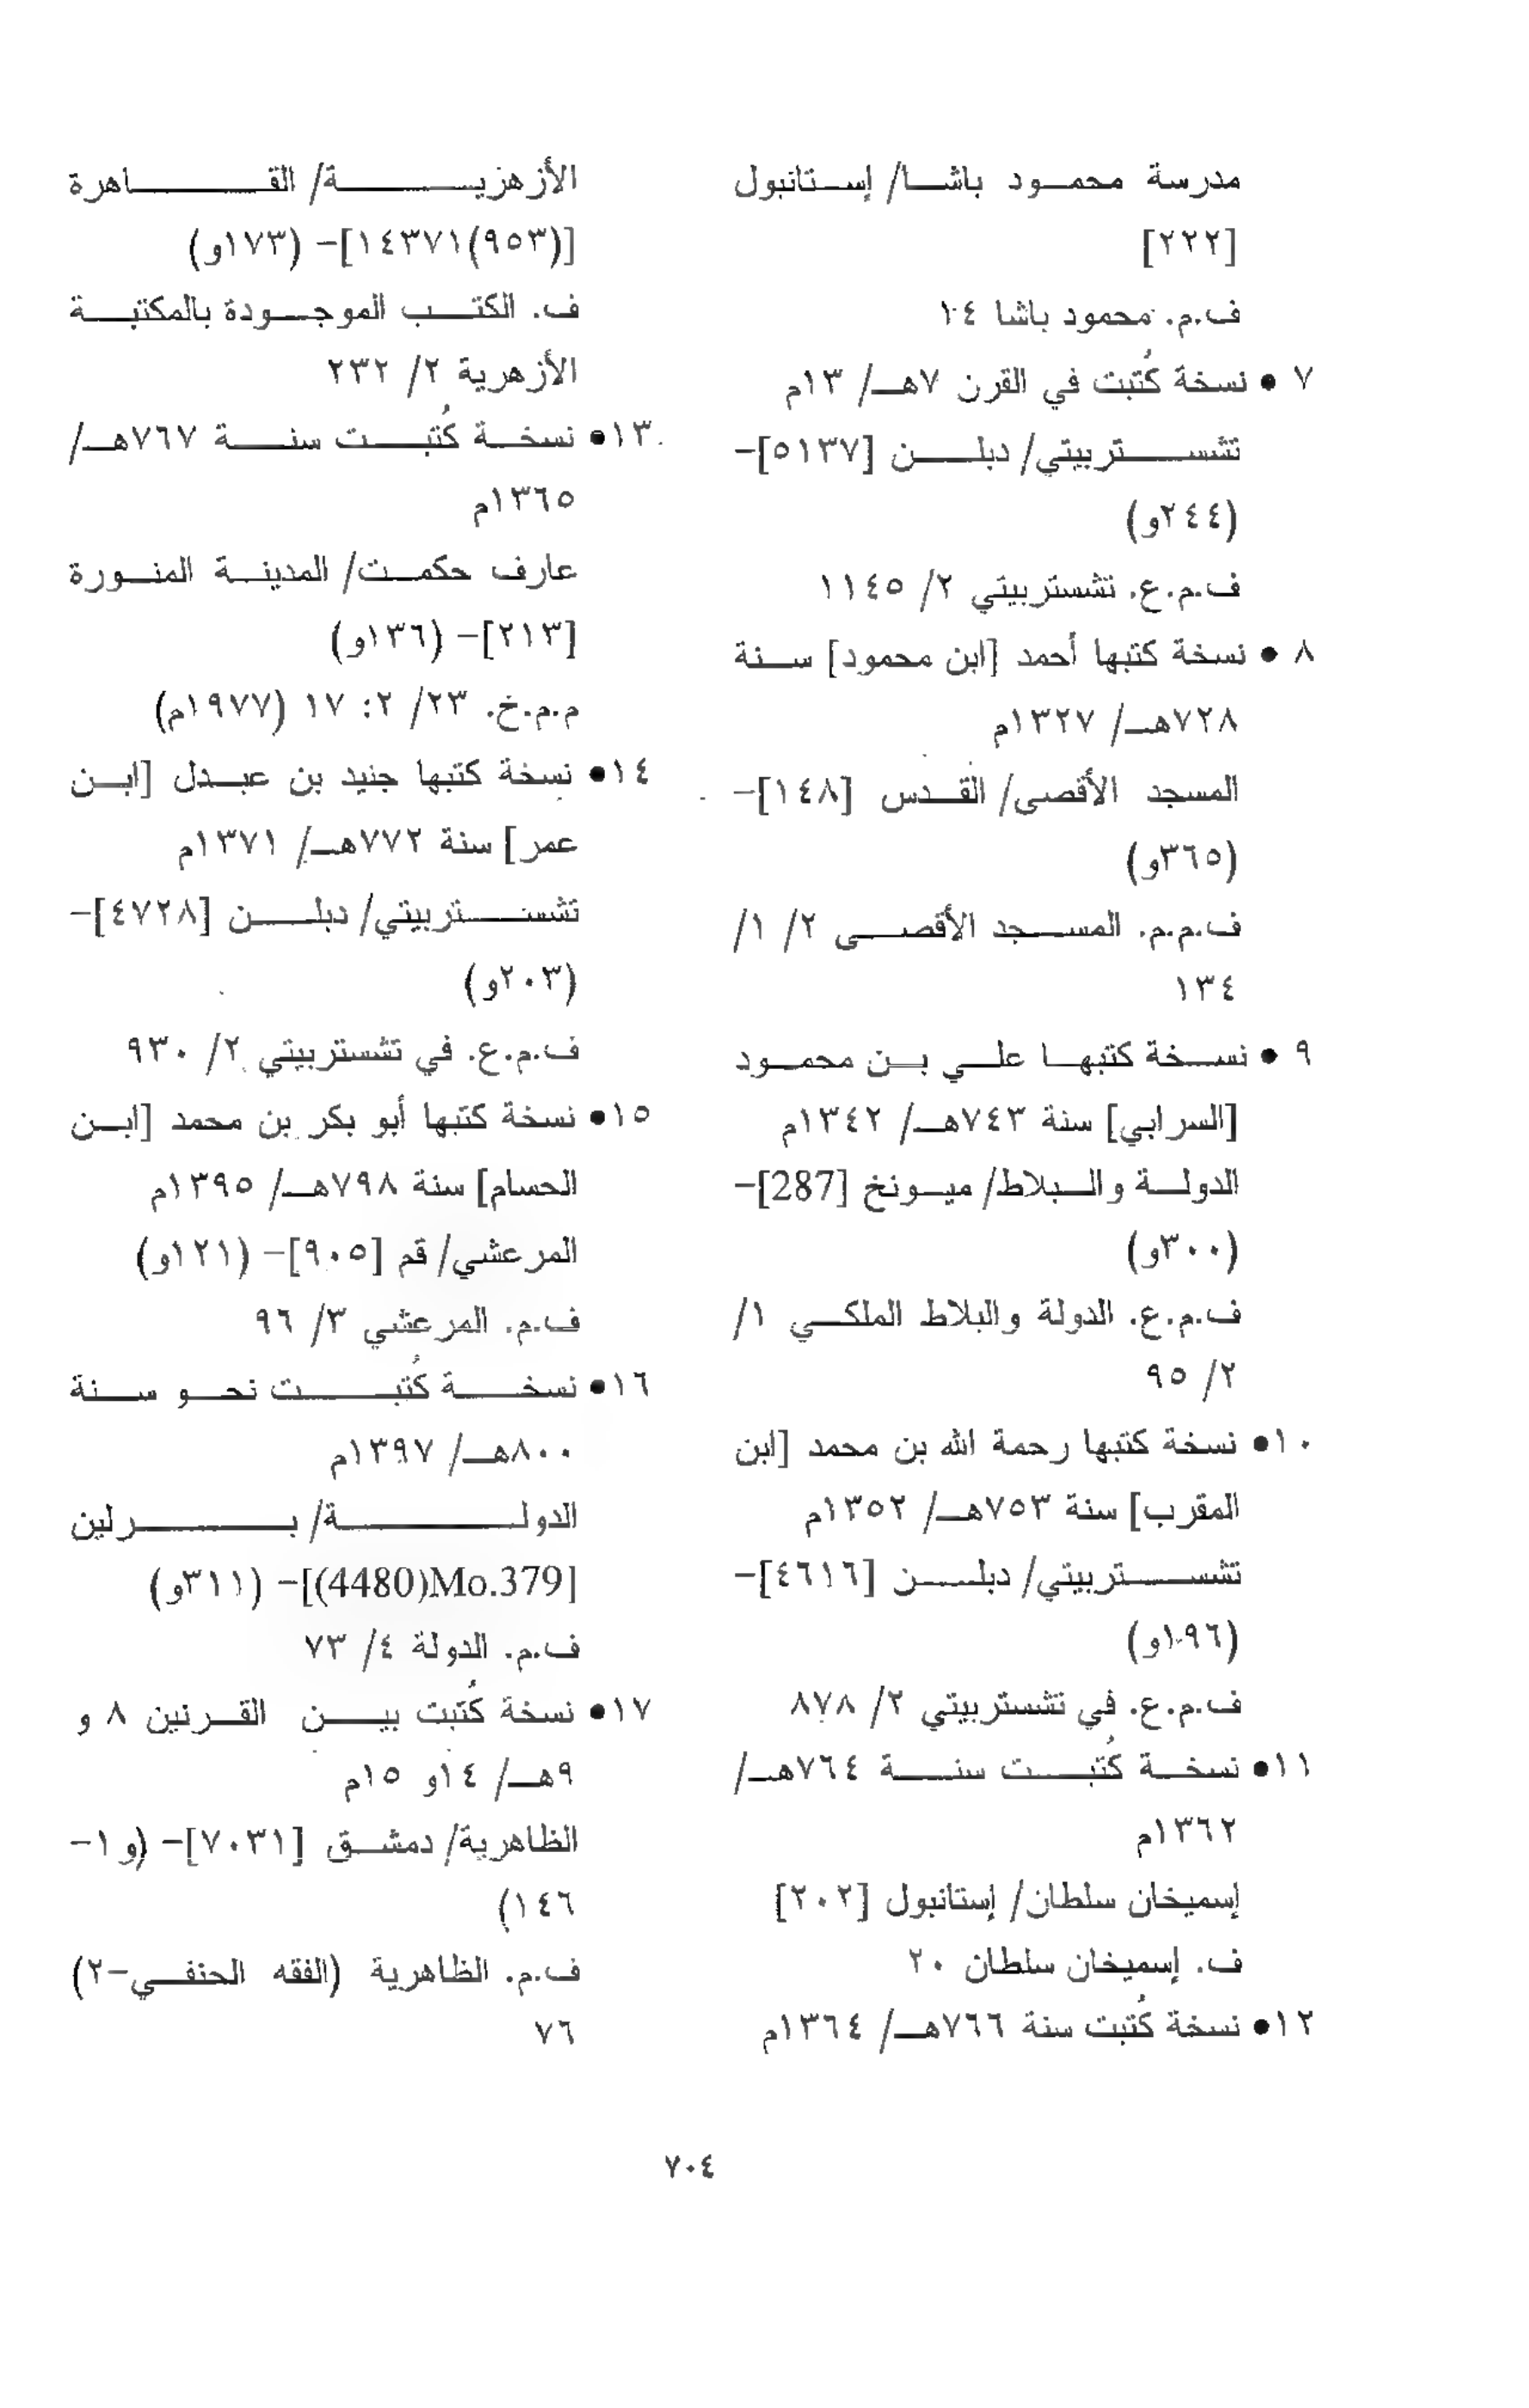 مدرسة محمود باشا/ إستانبول
[٢٢٢]
ف.م. محمود باشا ١٤
٧ • نسخة كُتبت في القرن ٧هـ/ ١٣م
تشستربيتي/ دبلن [٥١٣٧]-
(٢٤٤و)
ف.م.ع. تشستربيتي ٢/ ١١٤٥
٨ • نسخة كتبها أحمد [ابن محمود] سنة
٧٢٨هـ/ ١٣٢٧م
المسجد الأقصى/ القدس [١٤٨]-
(٣٦٥و)
ف.م.م. المسجد الأقصى ٢/ ١/
١٣٤
٩ • نسخة كتبها علي بن محمود
[السرابي] سنة ٧٤٣هـ/ ١٣٤٢م
الدولة والبلاط/ ميونخ [287]-
(٣٠٠و)
ف.م.ع. الدولة والبلاط الملكي ١/
٢/ ٩٥
١٠• نسخة كتبها رحمة الله بن محمد [ابن
المقرب] سنة ٧٥٣هـ/ ١٣٥٢م
تشستربيتي/ دبلن [٤٦١٦]-
(١٩٦و)
ف.م.ع. في تشستربيتي ٢/ ٨٧٨
١١• نسخة كُتبت سنة ٧٦٤هـ/
١٣٦٢م
إسميخان سلطان/ إستانبول [٢٠٢]
ف. إسميخان سلطان ٢٠
١٢• نسخة كُتبت سنة ٧٦٦هـ/ ١٣٦٤م
الأزهزية/ القاهرة
[(٩٥٣)١٤٣٧١]- (١٧٣و)
ف. الكتب الموجودة بالمكتبة
الأزهرية ٢/ ٢٣٢
١٣• نسخة كُتبت سنة ٧٦٧هـ/
١٣٦٥م
عارف حكمت/ المدينة المنورة
[٢١٣]- (١٣٦و)
م.م.خ. ٢٣/ ٢: ١٧ (١٩٧٧م)
١٤• نسخة كتبها جنيد بن عبدل [ابن
عمر] سنة ٧٧٢هـ/ ١٣٧١م
تشستربيتي/ دبلن [٤٧٢٨]-
(٢٠٣و)
ف.م.ع. في تشستربيتي ٢/ ٩٣٠
١٥• نسخة كتبها أبو بكر بن محمد [ابن
الحسام] سنة ٧٩٨هـ/ ١٣٩٥م
المرعشي/ قم [٩٠٥]- (١٢١و)
ف.م. المرعشي ٣/ ٩٦
١٦• نسخة كُتبت نحو سنة
٨٠٠هـ/ ١٣٩٧م
الدولة/ برلين
[(4480)Mo.379)]- (٣١١و)
ف.م. الدولة ٤/ ٧٣
١٧• نسخة كُتبت بين القرنين ٨ و
٩هـ/ ١٤و ١٥م
الظاهرية/ دمشق [٧٠٣١]- (و ١-
١٤٦)
ف.م. الظاهرية (الفقه الحنفي-٢)
٧٦
٧٠٤